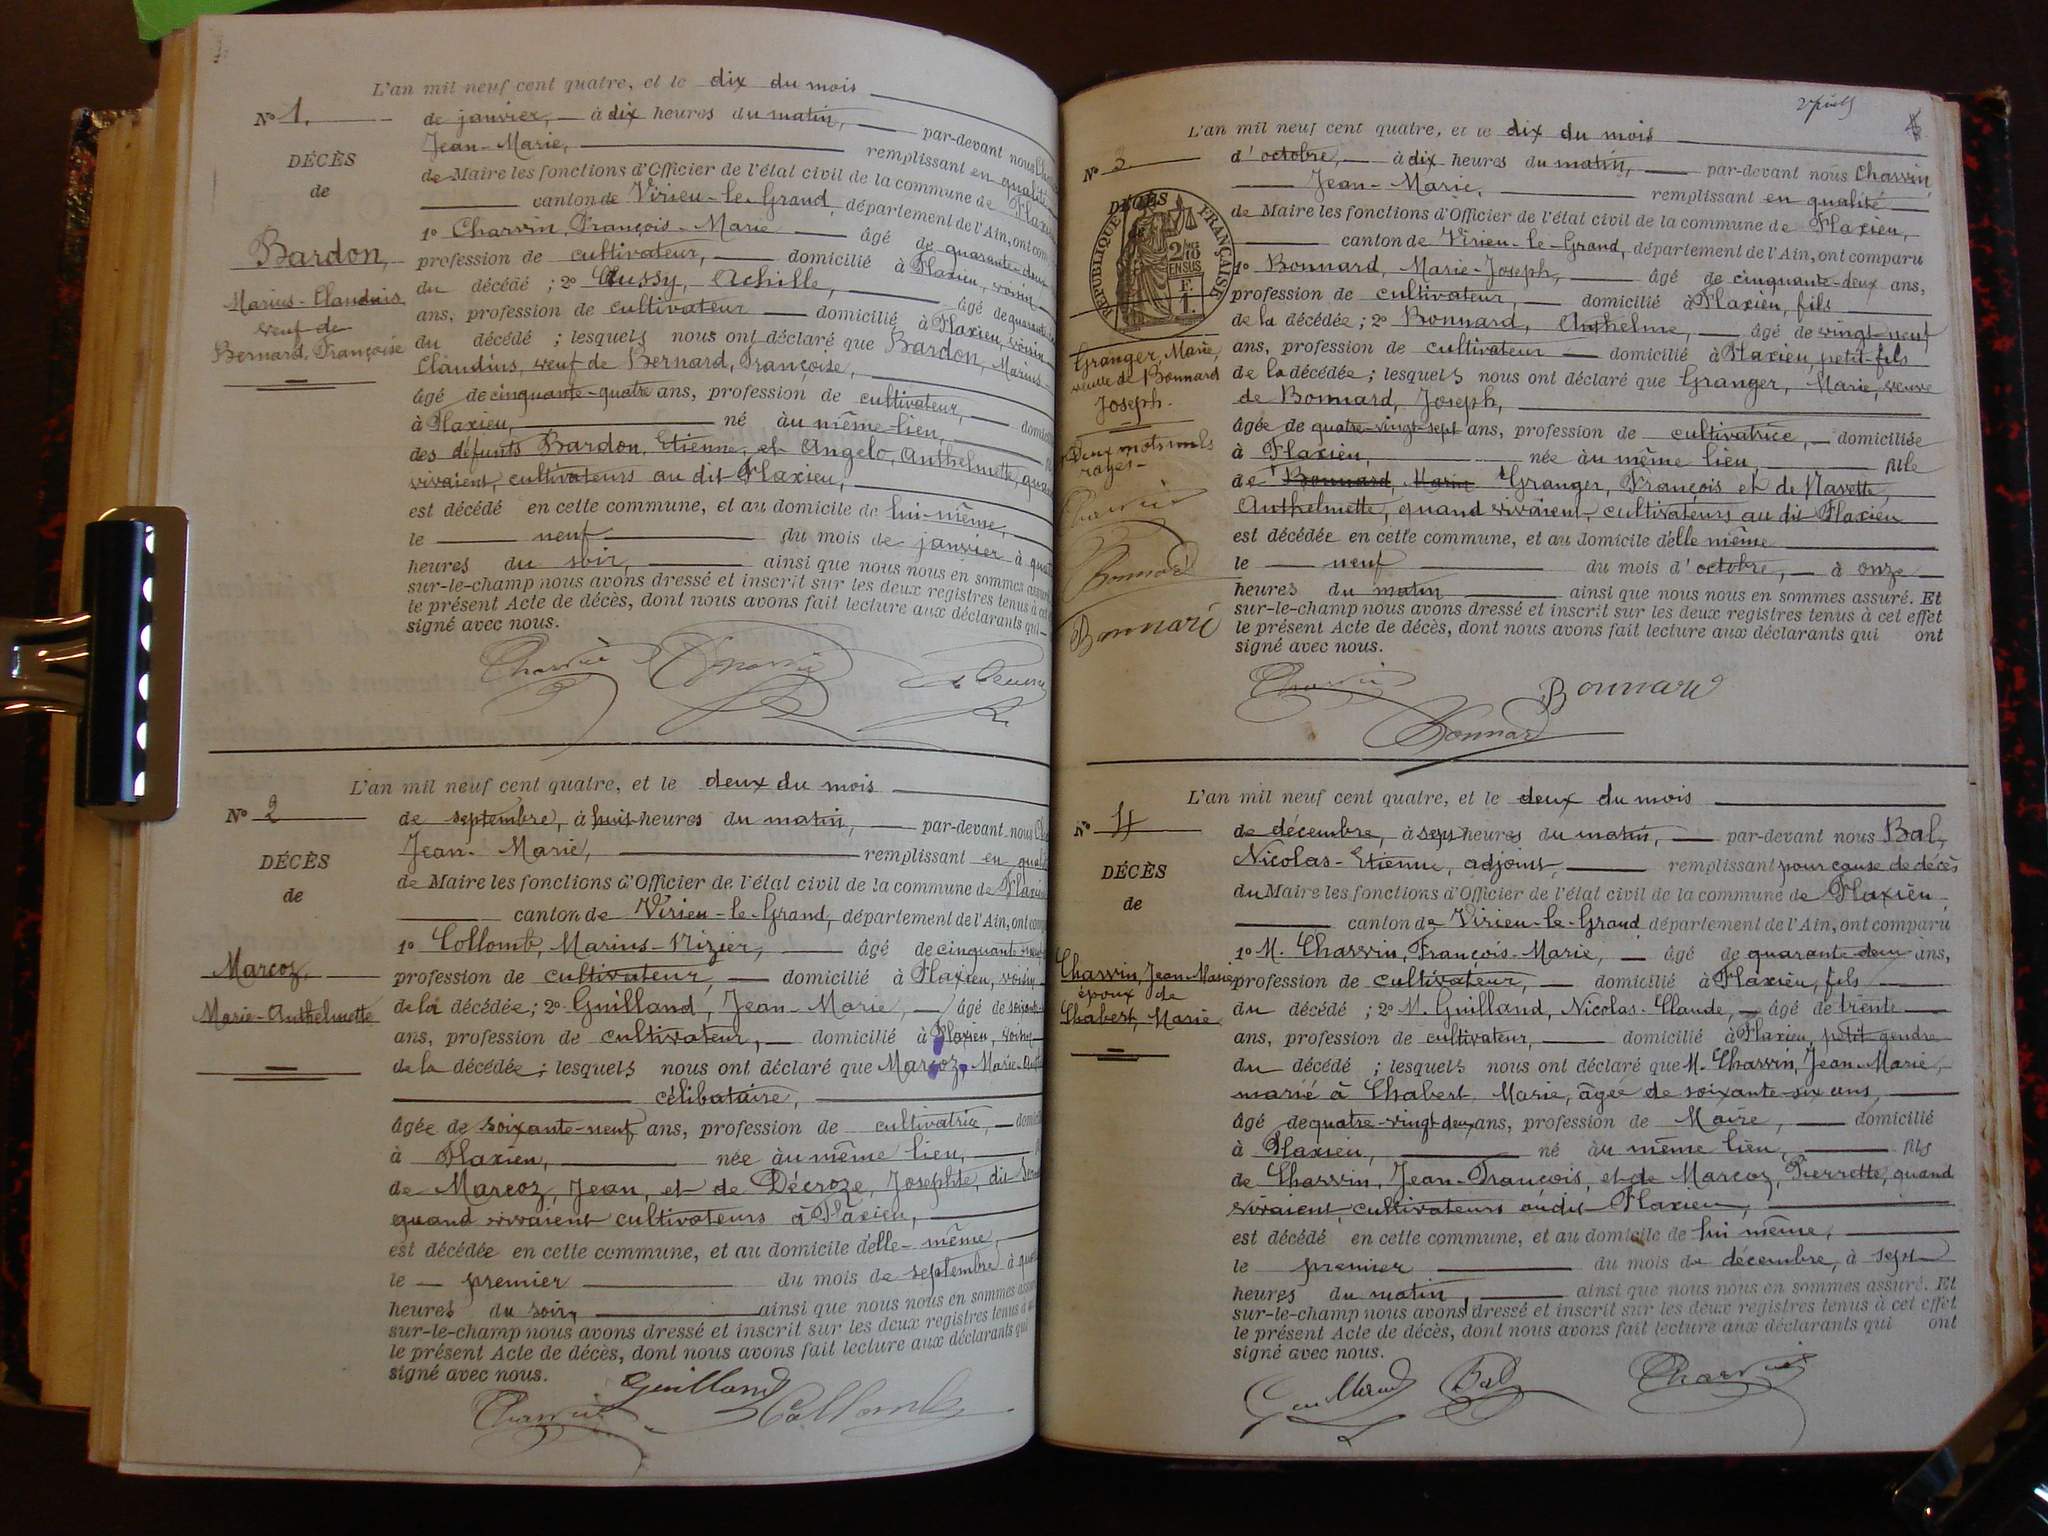 L'an mil neuf cent quatre, et le dix du mois
N° 1.
de janvier, à dix heures du matin, par-devant nous
Jean-Marie, remplissant en qualité
de Maire les fonctions d'Officier de l'état civil de la commune de
canton de Virieu-le-Grand, département de l'Ain, ont
DÉCÈS
de
Bardon,
Marius-Claudius
veuf de
Bernard, Françoise
1° Charvin, François-Marie âgé de quarante-deux
profession de cultivateur, domicilié à Flaxieu, voisin
du décédé ; 2° Aussy, Achille, âgé de
ans, profession de cultivateur domicilié à Flaxieu, voisin
du décédé ; lesquels nous ont déclaré que Bardon, Marius-
Claudius, veuf de Bernard, Françoise,
âgé de cinquante-quatre ans, profession de cultivateur,
à Flaxieu, né au même lieu,
des défunts Bardon, Etienne, et Angelo, Anthelmette,
vivaient, cultivateurs au dit Flaxieu,
est décédé en cette commune, et au domicile de lui-même,
le neuf du mois de janvier à
heures du soir, ainsi que nous nous en sommes
sur-le-champ nous avons dressé et inscrit sur les deux registres tenus à cet
le présent Acte de décès, dont nous avons fait lecture aux déclarants qui
signé avec nous.
Charvin
L'an mil neuf cent quatre, et le deux du mois
N° 2
de septembre, à huit heures du matin, par-devant nous
Jean-Marie, remplissant en
de Maire les fonctions d'Officier de l'état civil de la commune de
canton de Virieu-le-Grand, département de l'Ain, ont
DÉCÈS
de
Marcoz,
Marie-Anthelmette
1° Collomb, Marius-Nizier, âgé de
profession de cultivateur, domicilié à Flaxieu, voisin
de la décédée ; 2° Guilland, Jean-Marie, âgé de
ans, profession de cultivateur, domicilié à Flaxieu, voisin
de la décédée ; lesquels nous ont déclaré que Marcoz,
célibataire,
âgée de soixante-neuf ans, profession de cultivatrice,
à Flaxieu, née au même lieu,
de Marcoz, Jean, et de Décroze, Josephte, dit
quand vivaient cultivateurs à Flaxieu,
est décédée en cette commune, et au domicile d'elle-même,
le premier du mois de septembre à
heures du soir, ainsi que nous nous en sommes
sur-le-champ nous avons dressé et inscrit sur les deux registres tenus à
le présent Acte de décès, dont nous avons fait lecture aux déclarants qui
signé avec nous.
Guilland
Charvin Collomb
L'an mil neuf cent quatre, et le dix du mois
N° 3
d'octobre, à dix heures du matin, par-devant nous Charvin,
Jean-Marie, remplissant en qualité
de Maire les fonctions d'Officier de l'état civil de la commune de Flaxieu,
canton de Virieu-le-Grand, département de l'Ain, ont comparu
DÉCÈS
RÉPUBLIQUE FRANÇAISE
2/10
EN SUS
F.
1.
Granger, Marie,
veuve de Bonnard
Joseph.
Deux mots nuls
rayés
Charvin
Bonnard
Bonnard
1° Bonnard, Marie-Joseph, âgé de cinquante-deux ans,
profession de cultivateur, domicilié à Flaxieu, fils
de la décédée ; 2° Bonnard, Anthelme, âgé de vingt-neuf
ans, profession de cultivateur domicilié à Flaxieu, petit-fils
de la décédée ; lesquels nous ont déclaré que Granger, Marie, veuve
de Bonnard, Joseph,
âgée de quatre-vingt-sept ans, profession de cultivatrice, domiciliée
à Flaxieu, née au même lieu, fille
de Bonnard, Marie Granger, François et de Navette,
Anthelmette, quand vivaient, cultivateurs au dit Flaxieu
est décédée en cette commune, et au domicile d'elle même
le neuf du mois d'octobre, à onze
heures du matin ainsi que nous nous en sommes assuré. Et
sur-le-champ nous avons dressé et inscrit sur les deux registres tenus à cet effet
le présent Acte de décès, dont nous avons fait lecture aux déclarants qui ont
signé avec nous.
Charvin Bonnard
Bonnard
L'an mil neuf cent quatre, et le deux du mois
N° 4
de décembre, à sept heures du matin, par-devant nous Bal,
Nicolas-Etienne, adjoint, remplissant pour cause de décès
du Maire les fonctions d'Officier de l'état civil de la commune de Flaxieu
canton de Virieu-le-Grand département de l'Ain, ont comparu
DÉCÈS
de
Charvin, Jean-Marie
époux de
Chabert, Marie
1° M. Charvin, François-Marie, âgé de quarante-deux ans,
profession de cultivateur, domicilié à Flaxieu, fils
du décédé ; 2° M. Guilland, Nicolas-Claude, âgé de trente
ans, profession de cultivateur, domicilié à Flaxieu, petit gendre
du décédé ; lesquels nous ont déclaré que M. Charvin, Jean-Marie,
marié à Chabert, Marie, âgée de soixante-six ans
âgé de quatre-vingt-deux ans, profession de Maire, domicilié
à Flaxieu, né au même lieu, fils
de Charvin, Jean-François, et de Marcoz, Pierrette, quand
vivaient, cultivateurs audit Flaxieu,
est décédé en cette commune, et au domicile de lui même,
le premier du mois de décembre, à sept
heures du matin, ainsi que nous nous en sommes assuré. Et
sur-le-champ nous avons dressé et inscrit sur les deux registres tenus à cet effet
le présent Acte de décès, dont nous avons fait lecture aux déclarants qui ont
signé avec nous.
Guilland Bal Charvin